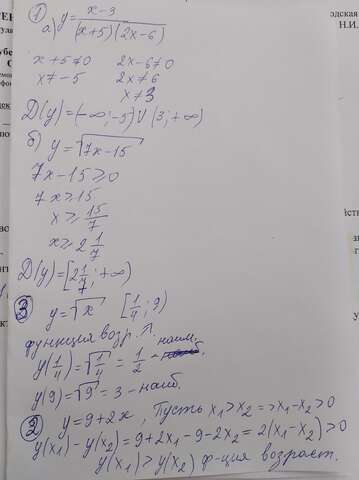 ① а) y = x-3 / (x+5)(2x-6)
x+5≠0 2x-6≠0
x≠-5 2x≠6
x≠3
D(y)=(-∞;-5)∪(3;+∞)
б) y=√7x-15
7x-15≥0
7x≥15
x≥15/7
x≥2 1/7
D(y)=[2 1/7;+∞)
③ y=√x [1/4; 9)
функция возр. наим.
y(1/4)=√1/4=1/2 -
y(9)=√9=3-наиб.
② y=9+2x, Пусть x₁>x₂=>x₁-x₂>0
y(x₁)-y(x₂)=9+2x₁-9-2x₂=2(x₁-x₂)>0
y(x₁)>y(x₂) ф-ция возраст.
Н.И.